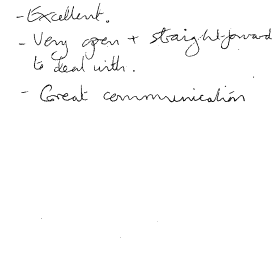 - Excellent.
- Very open + straight-forward
to deal with.
- Great communication